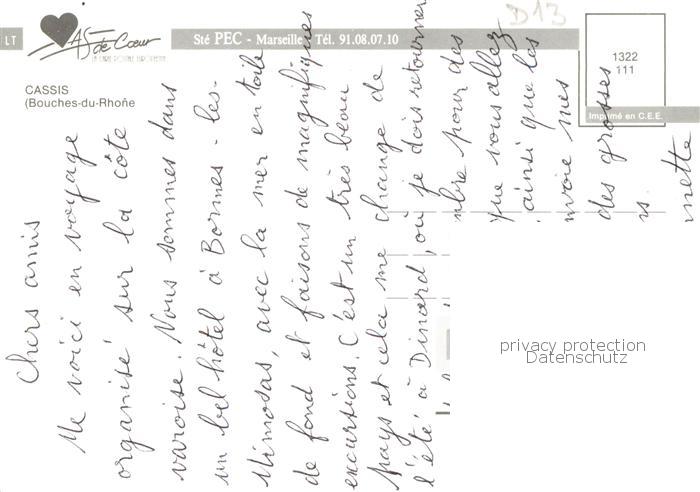 LT
As de Cœur
LA CARTE POSTALE EUROPEENNE
CASSIS
(Bouches-du-Rhône
Sté PEC - Marseille Tél. 91.08.07.10
D13
1322
111
Imprimé en C.E.E.
Chers amis
Me voici en voyage
organisé sur la côte
varoise. Nous sommes dans
un bel hôtel à Bormes-les-
Mimosas, avec la mer en toile
de fond et faisons de magnifiques
excursions. C'est un très beau
pays et cela me change de
l'été à Dinard, où je dois retourner
mbre pour des
que vous allez
ainsi que les
nvoie mes
des grosses
rs.
nette
privacy protection
Datenschutz